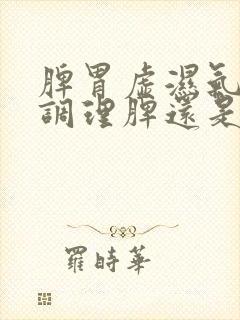 脾胃虛濕氣
調理脾還是
羅時華